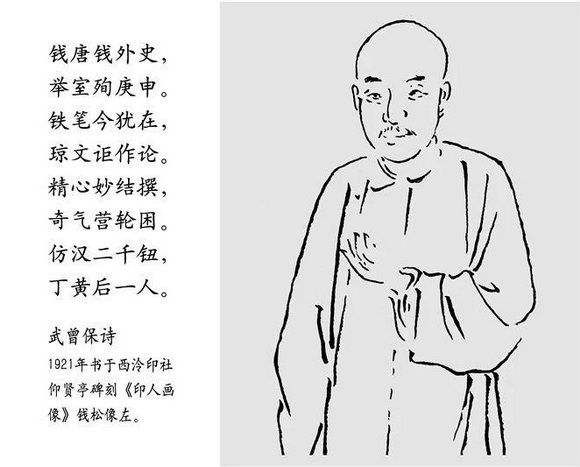 钱唐钱外史，
举室殉庚申。
铁笔今犹在，
琼文讵作论。
精心妙结撰，
奇气营轮囷。
仿汉二千钮，
丁黄后一人。
武曾保诗
1921年书于西泠印社
仰贤亭碑刻《印人画
像》钱松像左。